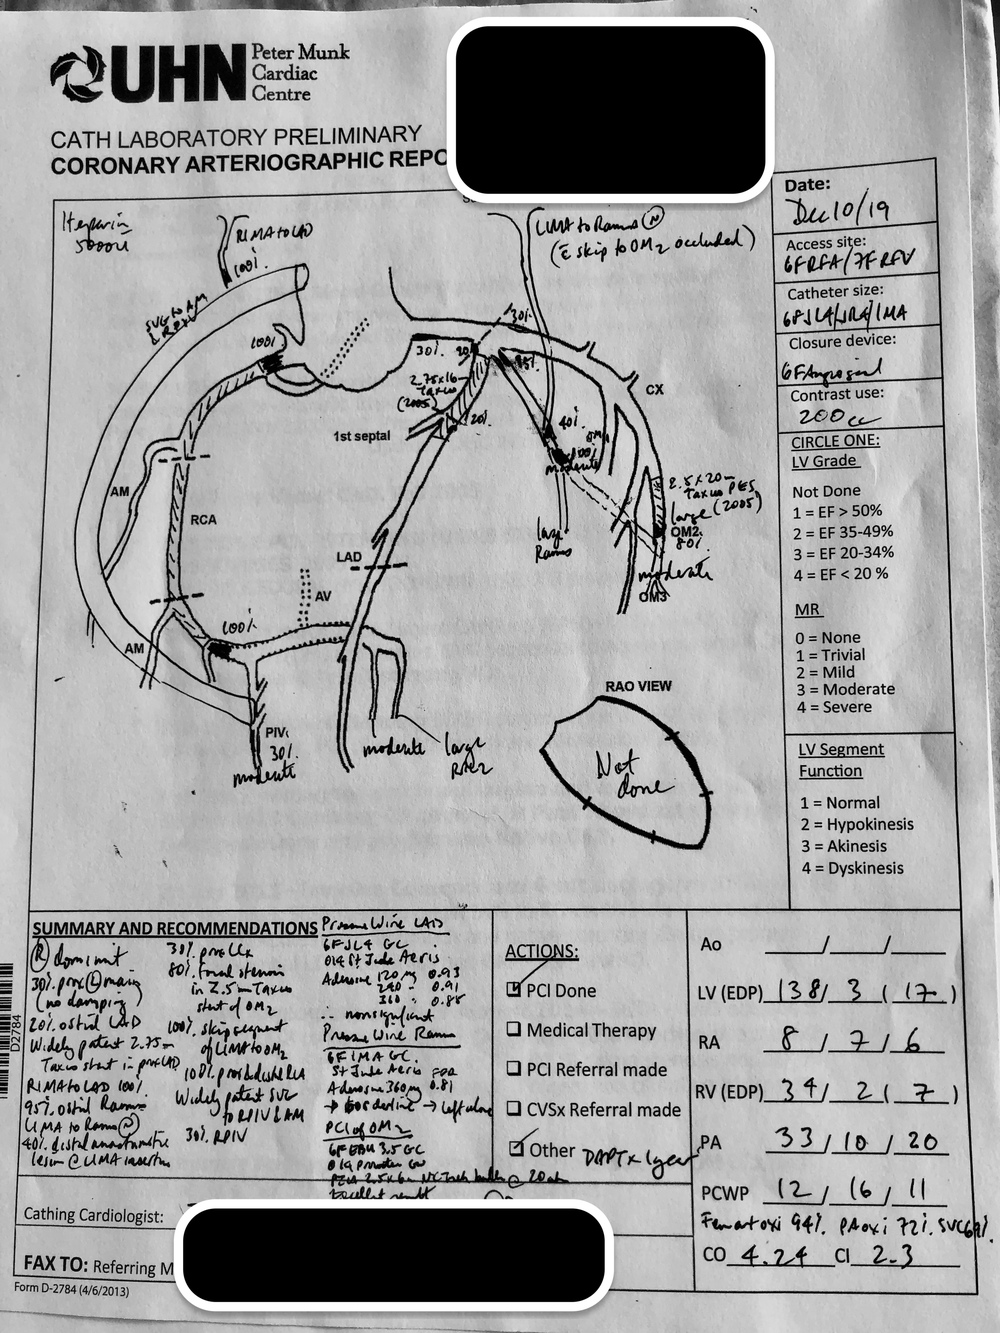 UHN Peter Munk
Cardiac
Centre
CATH LABORATORY PRELIMINARY
CORONARY ARTERIOGRAPHIC REPO
Heparin
5000u
RIMA to LAD
100%
LIMA to Ramus (N)
skip to OM2 occluded)
SVG to AM
100%
30%
30%
2.75x16
Taxus
(2005)
20%
1st septal
CX
40%
moderate
2.5x20
Taxus PES
large (2005)
OM2
80%
moderate
OM3
large
Ramus
AM
RCA
LAD
AV
100%
AM
PIV
30%
moderate
moderate
large
RAO VIEW
Not
done
Date:
Dec 10/19
Access site:
6FRFA/7FRFV
Catheter size:
6FJL4/JR4/IMA
Closure device:
6F Angioseal
Contrast use:
200cc
CIRCLE ONE:
LV Grade
Not Done
1 = EF > 50%
2 = EF 35-49%
3 = EF 20-34%
4 = EF < 20 %
MR
0 = None
1 = Trivial
2 = Mild
3 = Moderate
4 = Severe
LV Segment
Function
1 = Normal
2 = Hypokinesis
3 = Akinesis
4 = Dyskinesis
SUMMARY AND RECOMMENDATIONS
(R) dominant
30% prox (L) main
(no damping)
20% ostial LAD
Widely patent 2.75
Taxus stent in prox LAD
RIMA to LAD 100%
95% ostial Ramus
LIMA to Ramus (N)
40% distal anastomotic
lesion @ LIMA insertion
30% prox LCx
80% focal stenosis
in 2.5 Taxus
stent of OM2
100% skip segment
of LIMA to OM2
100% prox RCA
Widely patent SVG
to RPIV & AM
30% RPIV
Pressure Wire LAD
6FJL4 GC
014 St Jude Aeris
Adenosine 120 µg 0.93
240 - 0.91
360 - 0.88
∴ nonsignificant
Pressure Wire Ramus
6F IMA GC
St Jude Aeris FFR
Adenosine 360µg 0.81
→ borderline → left alone
PCI of OM2
6F EBU 3.5 GC
Excellent result
ACTIONS:
PCI Done
Medical Therapy
PCI Referral made
CVSx Referral made
Other DAPT x 1 year
Ao / /
LV (EDP) 138/ 3 ( 17 )
RA 8 / 7 / 6
RV (EDP) 34 / 2 ( 7 )
PA 33 / 10 / 20
PCWP 12 / 16 / 11
Fem art oxi 94% PA oxi 72% SVC 69%
CO 4.24 CI 2.3
Cathing Cardiologist:
FAX TO: Referring M
Form D-2784 (4/6/2013)
D2784